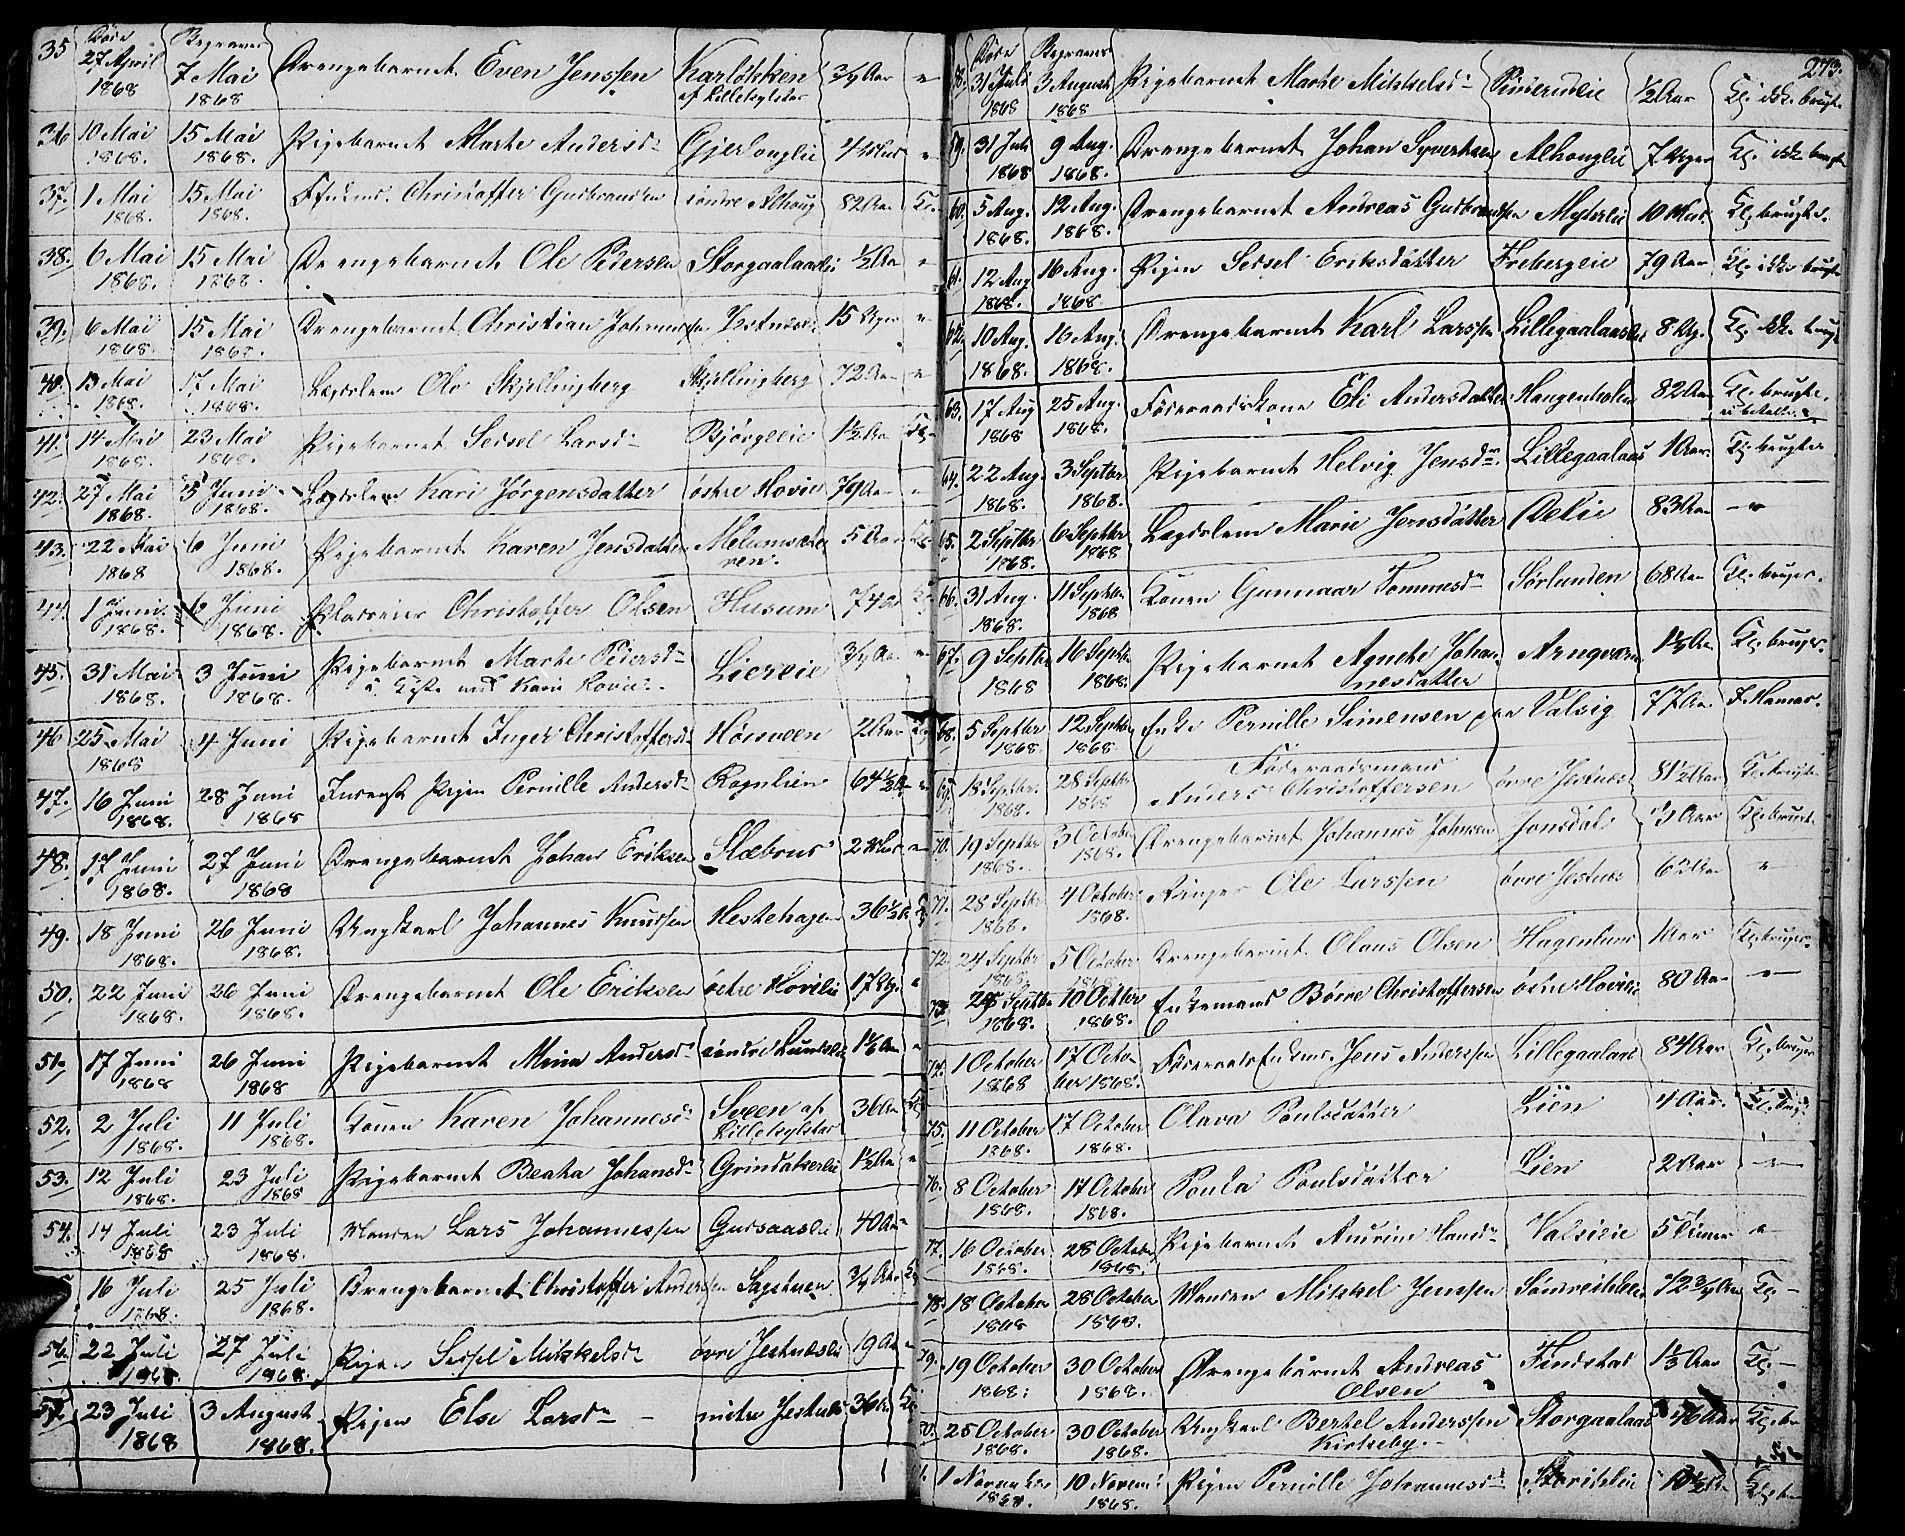 35 Døde Begraven
27 April 7 Mai Drengebarnet Even Jenssen Karløkken 3/4 Aar "
1868 1868 af Lillekylstar
36 10 Mai 15 Mai Pigebarnet Marte Andersd. Gjerlauglie 4 "
1868. 1868.
37. 1 Mai 15 Mai Christoffer Gudbrandsen søndre Alhoug 82 Aar Kl.
1868. 1868.
38. 6 Mai 15 Mai Drengebarnet Ole Pedersen Storgaalaaslie 1/2 Aar "
1868. 1868.
39. 6 Mai 15 Mai Drengebarnet Christian Johannesen 15 Uger "
1868. 1868.
40. 13 Mai 17 Mai Lægdslem Ole Skjellingberg Skjellingberg 72 Aar "
1868. 1868.
41. 14 Mai 23 Mai Pigebarnet Sedsel Larsd. Bjørgelie 1 1/2 Aar
1868. 1868.
42. 27 Mai 5 Juni Lægdslem Kari Jørgensdatter østre Hovie 79 Aar "
1868. 1868.
43. 22 Mai 6 Juni Pigebarnet Karen Jensdatter 5 Aar
1868 1868.
44. 1 Juni 6 Juni Pladseier Christoffer Olsen Husum 74 Aar
1868. 1868.
45. 31 Mai 3 Juni Pigebarnet Marte Pedersd. Liereie 3/4 Aar "
1868. 1868. med Kari
46 25 Mai 4 Juni Pigebarnet Inger Christoffersd. Høisveen 2 Aar
1868
47. 16 Juni 28 Juni Pigen Pernille Andersd. Rognlien 64 1/2 Aar "
1868. 1868
48. 17 Juni 27 Juni Drengebarnet Johan Eriksen Slæbrus 2 "
1868. 1868
49. 18 Juni 26 Juni Ungkarl Johannes Knudsen Hestehagen 36 1/2 Aar
1868. 1868.
50. 22 Juni 26 Juni Drengebarnet Ole Eriksen østre Hovilie 17 Ug. "
1868. 1868.
51. 17 Juni 26 Juni Pigebarnet Mina Andersd. søndre 1 1/2 Aar "
1868 1868
52. 2 Juli 11 Juli Konen Karen Johannesd. Sveen af 36 Aar
1868. 1868. Lillekylstar
53. 12 Juli 23 Juli Pigebarnet Beata Johansd. Grindakerlie 1 1/2 Aar "
1868. 1868
54. 14 Juli 23 Juli Manden Lars Johannessen Gudsaaslie 40 Aar
1868 1868.
16 Juli 25 Juli Drengebarnet Christoffer Andersen Sagstuen 3/4 Aar
1868. 1868.
56. 22 Juli 27 Juli Pigen Sedsel Mikkelsd. øvre Jestnæslie 19 Aar "
1968 1968.
57. 23 Juli 3 August Pigen Else Larsd. – Jestnæs 36 Aar
1868 1868.
273.
58. Døde Begraven
31 Juli 3 August Pigebarnet Marte Mikkelsd. 1/2 Aar Kl. ikke brugt.
1868 1868
59. 31 Juli 9 Aug. Drengebarnet Johan Syvertsen Alhouglie 7 Uger Kl. ikke brugt
1868 1868.
60. 5 Aug. 12 Aug. Drengebarnet Andreas Gudbrandsen Myhrlie 10 Kl. brugte.
1868. 1868.
61. 12 Aug 16 Aug. Pigen Sedsel Eriksdatter Freberglie 79 Aar Kl. ikke brugt
1868. 1868
62. 10 Aug. 16 Aug. Drengebarnet Karl Larssen Lillegaalaaslie 8 Ug. Kl. ikke brugt
1868. 1868.
63. 17 Aug 25 Aug. Føderaadskone Eli Andersdatter Haugenholen 82 Aar Kl. brugte.
1868 1868.
64. 22 Aug. 3 Septbr Pigebarnet Helvig Jensd. Lillegaalaas 1 Aar Kl. brugtes
1868. 1868.
65. 2 Septbr 6 Septbr Lægdslem Marie Jensdatter 83 Aar – "
1868. 1868
66. 31 Aug. 11 Septbr Konen Gunnaar Tommesd. Sørlunden 68 Aar Kl. bruges.
1868. 1868
67. 9 Septbr 16 Septbr Pigebarnet Agnete Johan- 1 1/2 Aar Kl. bruges.
1868 1868. nesdatter
68. 5 Septbr 12 Septbr Enke Pernille Simensen paa Valsig 77 Aar F. Hamar.
1868. 1868.
Føderaadsmand
69. 18 Septbr. 28 Septbr Anders Christoffersen øvre Jestnæs 81 1/2 Aar Kl. brugte
1868. 1868
70. 19 Septbr 3 October Drengebarnet Johannes Johnsen Jonsdal 3 Aar Kl. brugt.
1868. 1868.
71. 28 Septbr 4 October Ole Larssen øvre Jestnæs 62 Aar "
1868. 1868.
72. 24 Septbr 5 October Drengebarnet Olaus Olsen Hagenlund 1 Aar Kl. bruges.
1868. 1868.
73. 10 Octbr Enkemand Børre Christoffersen østre Hovilie 80 Aar – " –
1868. 1868.
74. 1 October 17 Octo- Jens Anderssen Lillegaalaas 84 Aar Kl. bruges
1868 ber 1868.
75. 11 October 17 October Olava Poulsdatter Lien 4 Aar.
1868. 1868.
76. 8 October 17 October Poula Poulsdatter Lien 2 Aar – " –
1868. 1868.
77. 16 October 28 October Pigebarnet Hansd. Valsieie 5 Timer "
1868. 1868.
78. 18 October 28 October Manden Mikkel Jenssen 72 3/4 Aar Kl. –
1868 1868.
79. 19 October 30 October Drengebarnet Andreas Findstad 1 1/3 Aar Kl. –
1868. 1868. Olsen
80. 25 October 30 October Ungkarl Bertel Anderssen Storgaalaas 46 Aar
1868. 1868. Kirkeby. –
1 November 10 Novem: Pigen Pernille Johannesd. 10 1/2 Aar
1868. 1868.